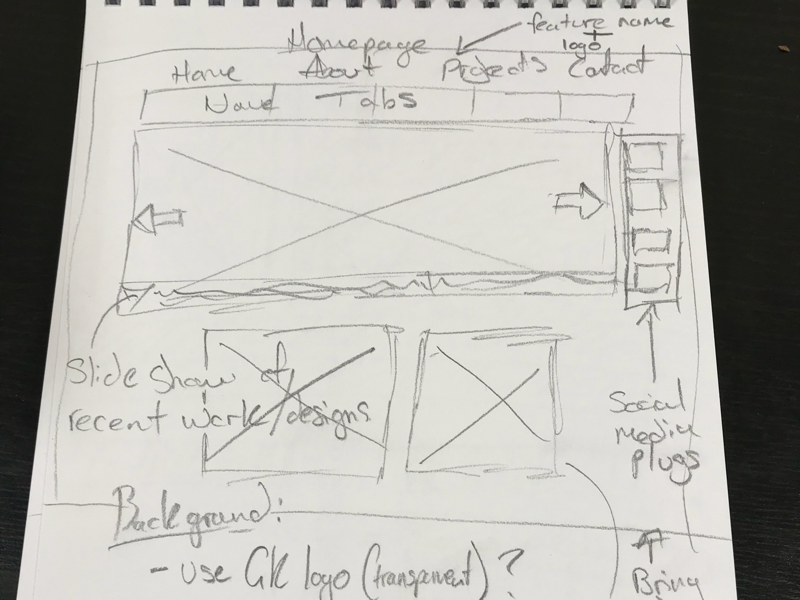 feature name
+
logo
Homepage
Home About Projects Contact
Tabs
Slide show of
recent work/designs
Social
media
plugs
Background:
- use GK logo (transparent)?
Bring